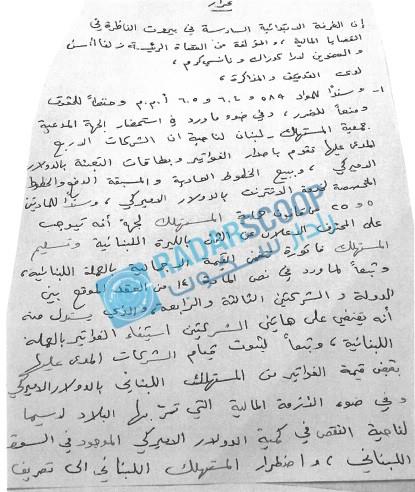 قرار
إن الغرفة الابتدائية السادسة في بيروت الناظرة في
القضايا المالية، والمؤلفة من القضاة الرئيسة
والعضوين لدى التدقيق والمذاكرة،
١- وسنداً للمواد ٥٨٩ و ٦٠٤ و ٦٠٥ أ.م.م. ومنعاً
ومنعاً للضرر، وفي ضوء ما ورد في استحضار الجهة المدعية
جمعية المستهلك - لبنان لناحية ان الشركات الاربع
المدعى عليها تقوم باصدار الفواتير وبطاقات التعبئة بالدولار
الاميركي، وببيع الخطوط العادية والمسبقة الدفع والخطوط
المخصصة لخدمة الانترنت بالدولار الاميركي، وسنداً للمادتين
٥ و ٢٥ من قانون حماية المستهلك لجهة أنه يتوجب
على المحترف الاعلان عن الثمن بالليرة اللبنانية وتسليم
المستهلك فاتورة تتضمن القيمة الاجمالية بالعملة اللبنانية،
وتبعاً لما ورد في نص المادة من العقد الموقع بين
الدولة والشركتين الثالثة والرابعة، والذي يستدل منه
أنه يقتضي على هاتين الشركتين استيفاء الفواتير بالعملة
اللبنانية، وتبعاً لثبوت قيام الشركات المدعى عليها
بقبض قيمة الفواتير من المستهلك اللبناني بالدولار الاميركي
وفي ضوء الازمة المالية التي تمر بها البلاد لا سيما
لناحية النقص في كمية الدولار الاميركي الموجود في السوق
اللبناني، واضطرار المستهلك اللبناني الى تصريف
RADARSCOOP